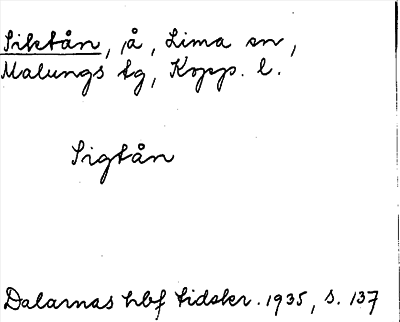 Siktån, å, Lima sn,
Malungs tg, Kopp. l.
Sigtån
Dalarnas hbf tidskr. 1935, s. 137